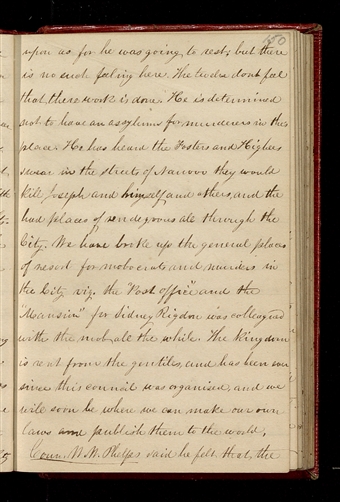 150
upon us for he was going to rest; but there
is no such feling here. The twelve dont feel
that there work is done. He is determined
not to have an assylum for murderers in this
place. He has heard the Fosters and Higbees
swear in the streets of Nauvoo they would
kill Joseph and himself and others, and the
had places of rendezvous all through the
City. We have broke up the general places
of resort for mobocrats and murders in
the City viz. the "Post office" and the
"Mansion" for Sidney Rigdon was colleagued
with the mob all the while. The kingdom
is rent from the gentiles, and has been ever
since this council was organised, and we
will soon be where we can make our own
laws and publish them to the world,
Coun. W. W. Phelps said he felt that the